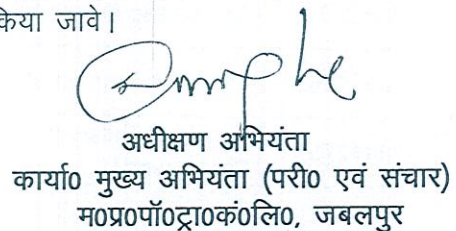 किया जावे।
अधीक्षण अभियंता
कार्या0 मुख्य अभियंता (परी0 एवं संचार)
म0प्र0पॉ0ट्रा0कं0लि0, जबलपुर